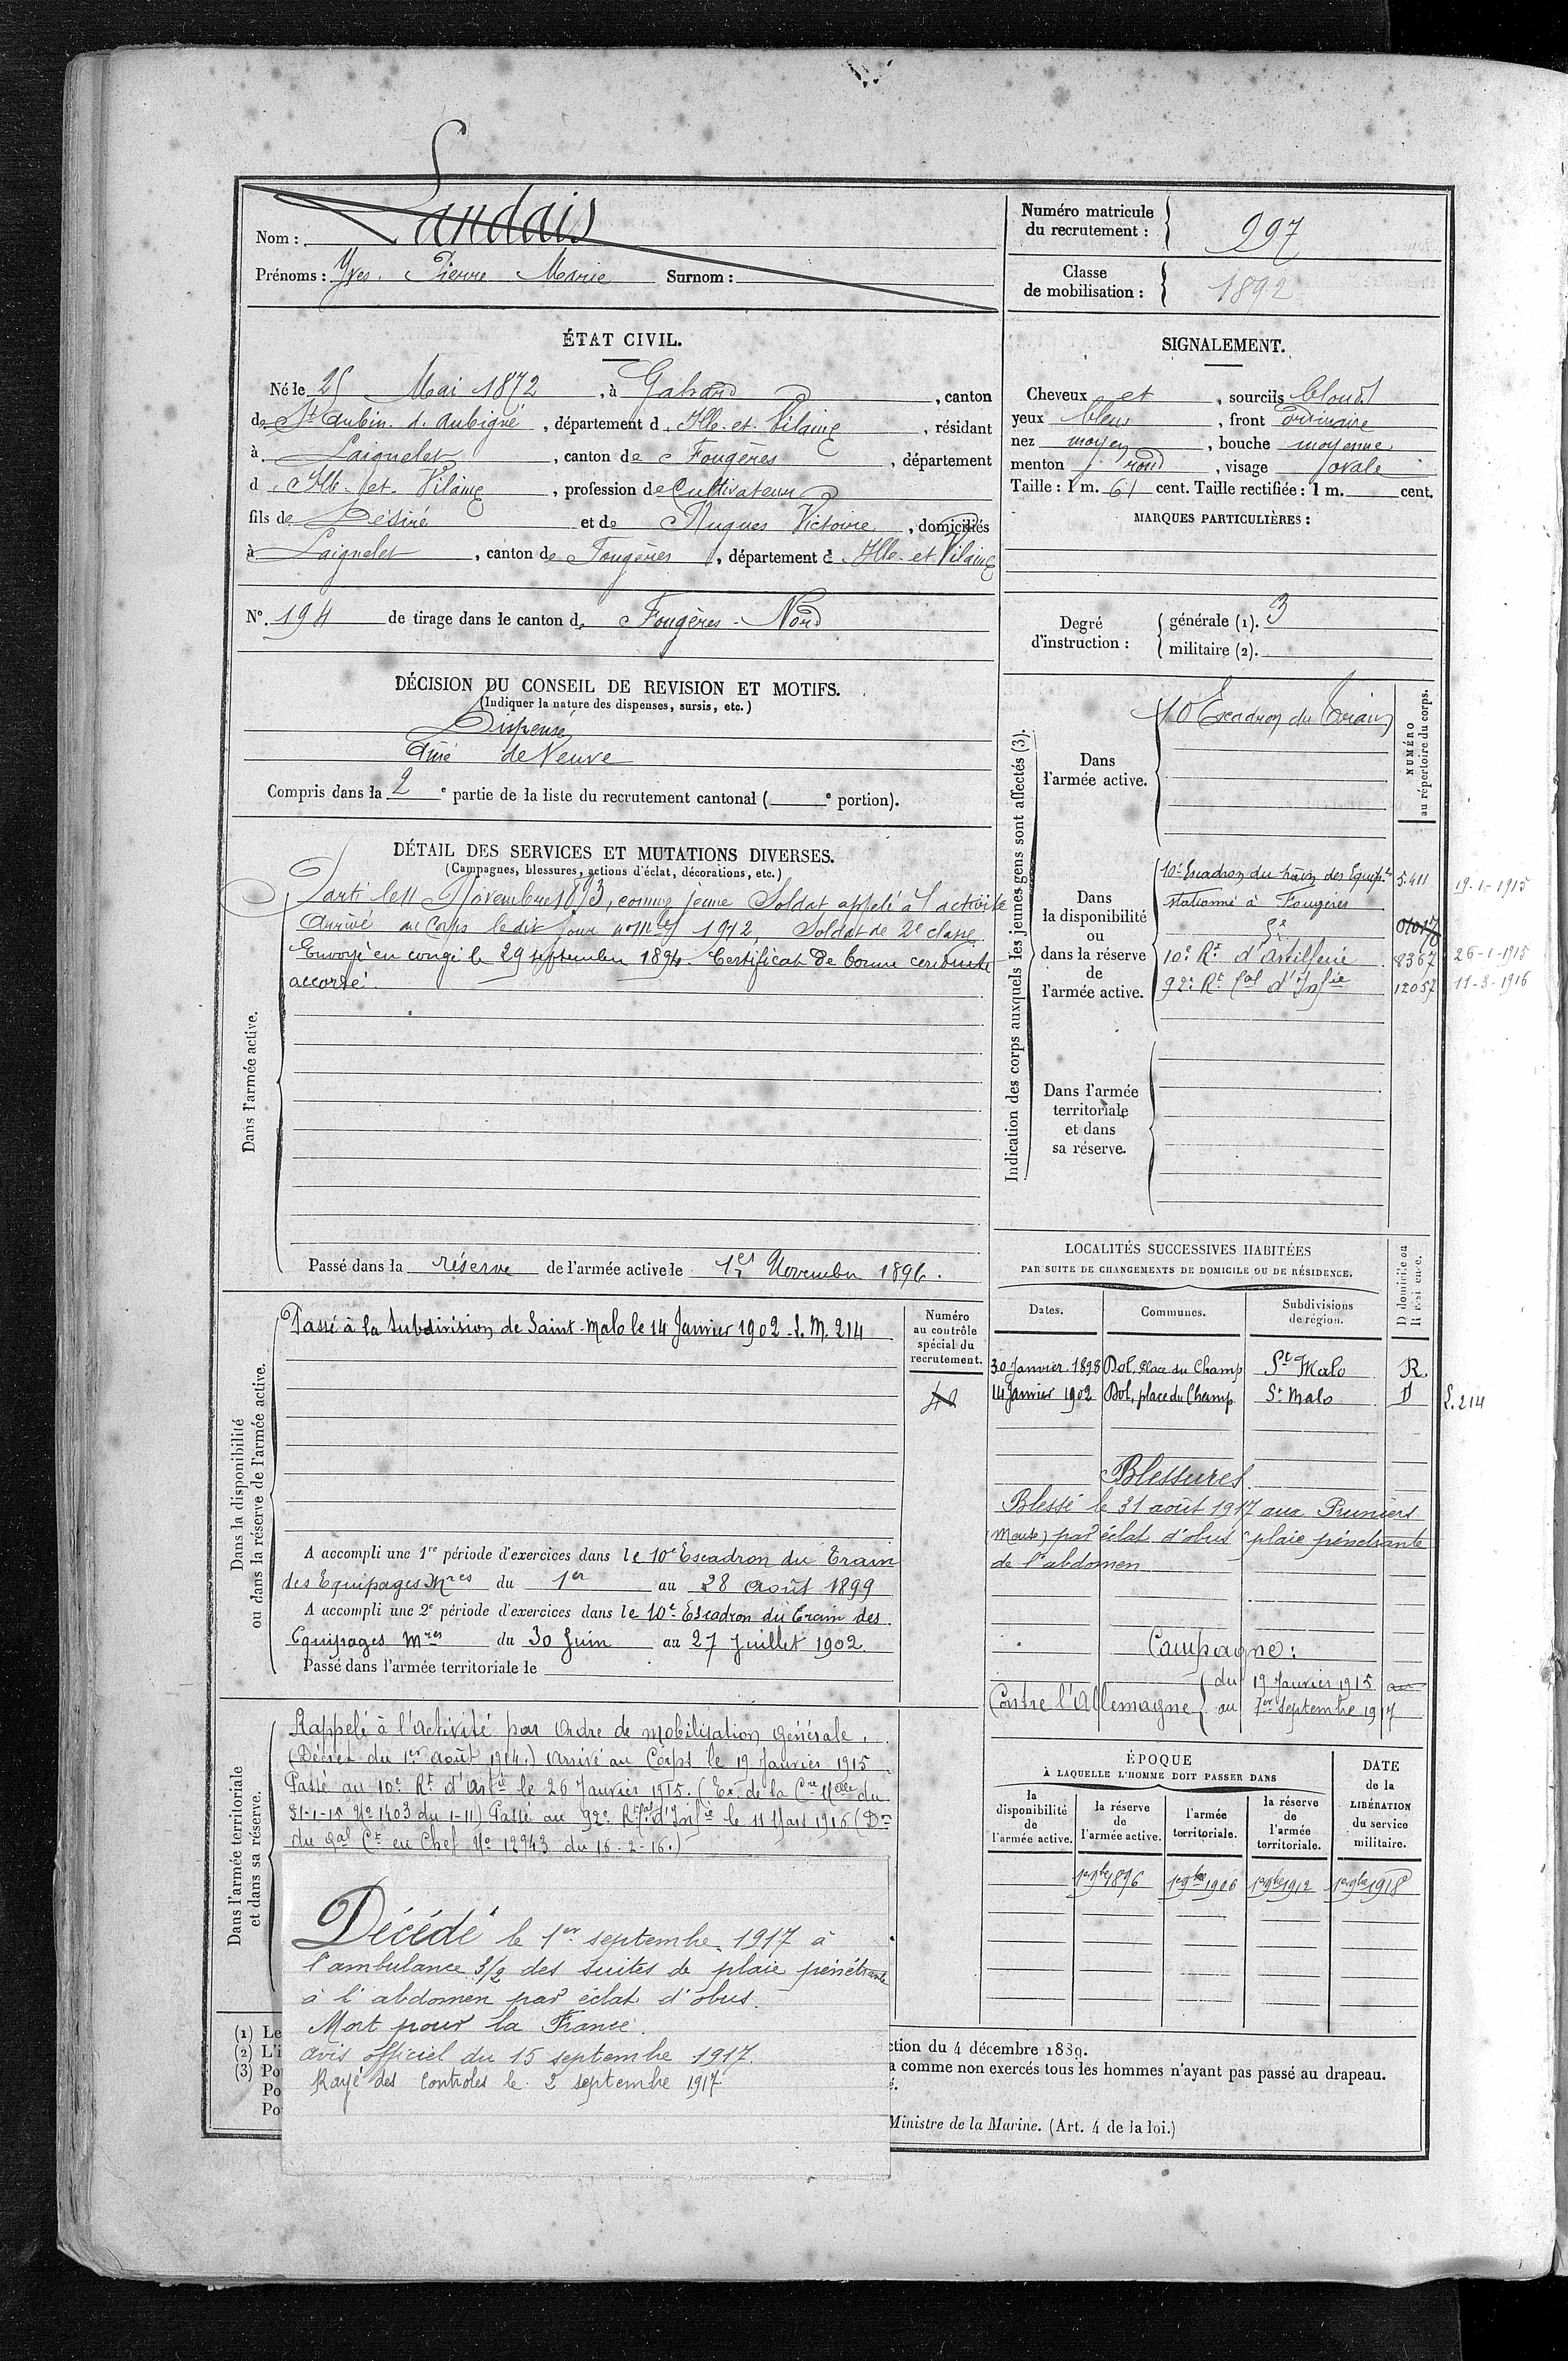 Nom : Landais
Prénoms : Yves Pierre Marie Surnom :
Numéro matricule du recrutement : 997
Classe de mobilisation : 1892
ÉTAT CIVIL.
Né le 25 Mai 1872, à Gahard, canton
de St Aubin d. Aubigné, département d Ille-et-Vilaine, résidant
à Laignelet, canton de Fougères, département
d Ille-et-Vilaine, profession de Cultivateur
fils de Désiré et de Hugues Victoire, domiciliés
à Laignelet, canton de Fougères, département d Ille-et-Vilaine
N° 194 de tirage dans le canton de Fougères-Nord
SIGNALEMENT.
Cheveux et, sourcils blond
yeux bleus, front ordinaire
nez moyen, bouche moyenne
menton rond, visage ovale
Taille : 1 m. 61 cent. Taille rectifiée : 1 m. cent.
MARQUES PARTICULIÈRES :
Degré d'instruction :
générale (1). 3
militaire (2).
DÉCISION DU CONSEIL DE REVISION ET MOTIFS.
(Indiquer la nature des dispenses, sursis, etc.)
Dispensé
Ainé de Veuve
Compris dans la 2e partie de la liste du recrutement cantonal ( e portion).
DÉTAIL DES SERVICES ET MUTATIONS DIVERSES.
(Campagnes, blessures, actions d'éclat, décorations, etc.)
Dans l'armée active.
Parti le 11 Novembre 1893, comme jeune Soldat appelé à l'activité
Arrivé au Corps ledit jour no mle 1912, Soldat de 2e classe
Envoyé en congé le 29 septembre 1894. Certificat de bonne conduite
accordé.
Passé dans la réserve de l'armée active le 1er Novembre 1896.
Indication des corps auxquels les jeunes gens sont affectés (3).
NUMÉRO au répertoire du corps.
Dans l'armée active.
10 Escadron du Train
Dans la disponibilité ou dans la réserve de l'armée active.
10e Escadron du train des Equip.es 5.411 19-1-1915
stationné à Fougères
10e Rt d'Artillerie 8367 26-1-1915
92e Rt Cal d'Infie 12057 11-3-1916
Dans l'armée territoriale et dans sa réserve.
Dans la disponibilité ou dans la réserve de l'armée active.
Passé à la Subdivision de Saint-Malo le 14 Janvier 1902 - L. M. 214
Numéro au contrôle spécial du recrutement.
A accompli une 1re période d'exercices dans le 10e Escadron du Train
des Equipages Mres du 1er au 28 Août 1899
A accompli une 2e période d'exercices dans le 10e Escadron du Train des
Equipages Mres du 30 Juin au 27 Juillet 1902.
Passé dans l'armée territoriale le
LOCALITÉS SUCCESSIVES HABITÉES
PAR SUITE DE CHANGEMENTS DE DOMICILE OU DE RÉSIDENCE.
Dates. Communes. Subdivisions de région. D domicile ou R résidence.
30 Janvier 1898 Dol, Place du Champ St Malo R.
14 Janvier 1902 Dol, place du Champ St Malo D L. 214
Blessures.
Blessé le 31 août 1917 aux Pruniers
Meuse) par éclat d'obus "plaie pénétrante
de l'abdomen
Campagne :
Contre l'Allemagne { du 19 Janvier 1915 au
au 1er Septembre 1917
Dans l'armée territoriale et dans sa réserve.
Rappelé à l'activité par Ordre de mobilisation générale.
(Décret du 1er août 1914.) Arrivé au Corps le 19 Janvier 1915
Passé au 10e Rt d'Artie le 26 Janvier 1915. (Ex. de la Cre Melle du
31-1-15 No 1403 du 1-11) Passé au 92e Rt Cal d'Infie le 11 Mars 1916 (Dn
du Gal Ct en Chef No 12943 du 16-2-16.)
Décédé le 1er septembre 1917 à
l'ambulance 3/2 des suites de plaie pénétrante
à l'abdomen par éclat d'obus.
Mort pour la France.
avis officiel du 15 septembre 1917.
Rayé des Contrôles le 2 septembre 1917
ÉPOQUE
À LAQUELLE L'HOMME DOIT PASSER DANS
la disponibilité de l'armée active. la réserve de l'armée active. l'armée territoriale. la réserve de l'armée territoriale. DATE de la LIBÉRATION du service militaire.
1er 9bre 1896 1er 9bre 1906 1er 9bre 1912 1er 9bre 1918
(1) Le
(2) L'i
(3) Po
Po
Po
ction du 4 décembre 1889.
a comme non exercés tous les hommes n'ayant pas passé au drapeau.
é.
Ministre de la Marine. (Art. 4 de la loi.)